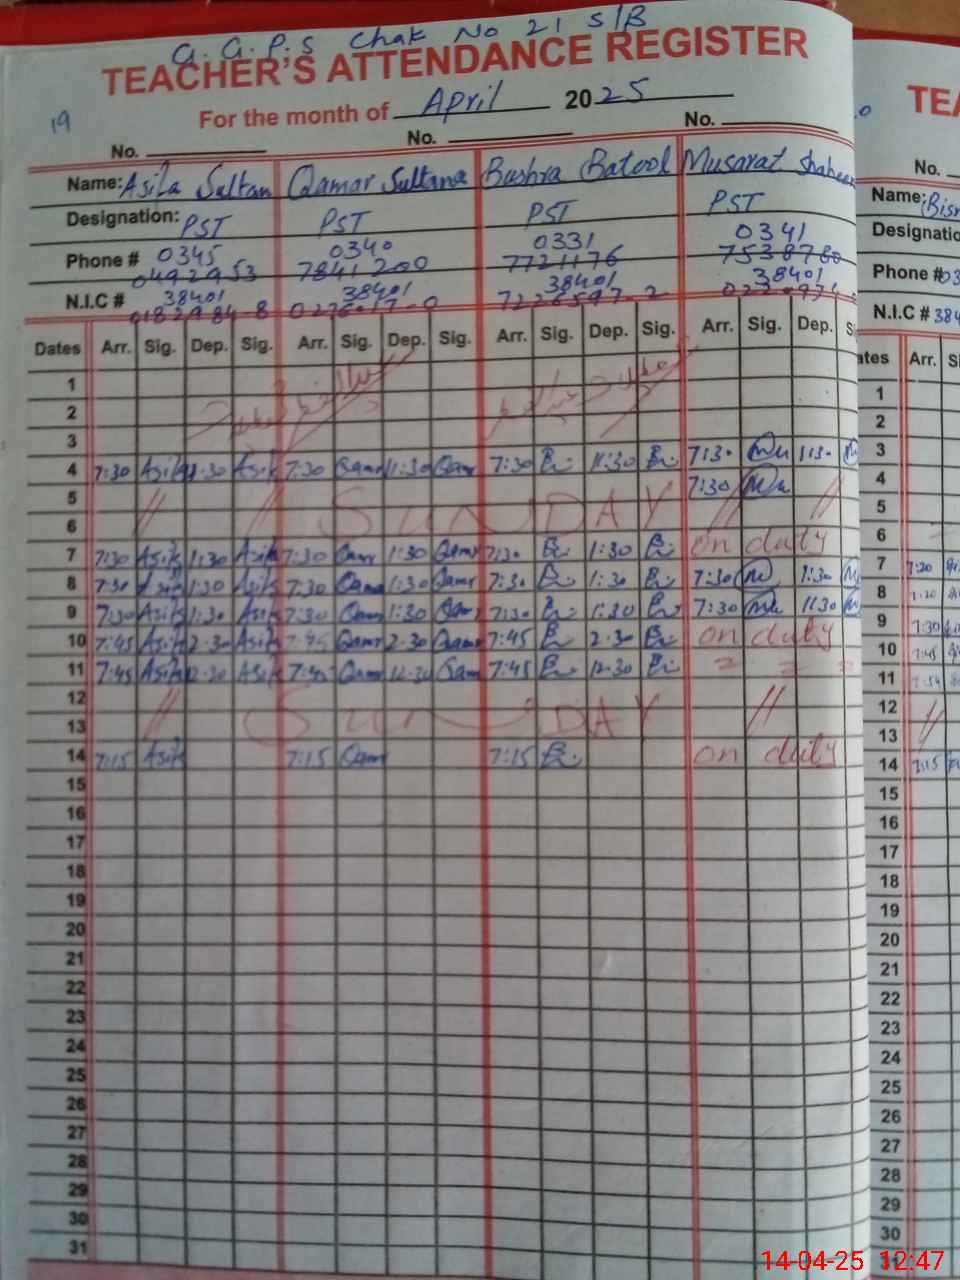 G.G.P.S Chak No 21 S/B
TEACHER'S ATTENDANCE REGISTER
19
For the month of April 2025
No. No. No.
Name: Asifa Sultan Qamar Sultana Bushra Batool Musarat Shaheen
Designation: PST PST PST PST
Phone # 0345 0340 0331 0341
0492953 7841200 7721176 7538780
N.I.C # 38401 38401 38401 38401
Dates Arr. Sig. Dep. Sig. Arr. Sig. Dep. Sig. Arr. Sig. Dep. Sig. Arr. Sig. Dep.
1
2
3 7:30 1:30
4 7:30 Asifa 11:30 Asifa 7:30 Qamr 11:30 Qamr 7:30 11:30 7:30
5 // // SUNDAY // //
6
7 7:30 Asifa 1:30 Asifa 7:30 Qamr 1:30 Qamr 7:30 1:30 on duty
8 7:30 Asifa 1:30 Asifa 7:30 Qamr 1:30 Qamr 7:30 1:30 7:30 1:30
9 7:30 Asifa 1:30 Asifa 7:30 Qamr 1:30 Qamr 7:30 1:30 7:30 1:30
10 7:45 Asifa 2:30 Asifa 7:45 Qamr 2:30 Qamr 7:45 2:30 on duty
11 7:45 Asifa 12:30 Asifa 7:45 Qamr 12:30 Qamr 7:45 12:30
12 // SUNDAY //
13
14 7:15 Asifa 7:15 Qamr 7:15 on duty
15
16
17
18
19
20
21
22
23
24
25
26
27
28
29
30
31
TEA
No.
Name: Bism
Designatio
Phone # 03
N.I.C # 384
ates Arr. S
1
2
3
4
5
6
7 7:20
8
9 7:30
10 7:45
11
12 //
13
14 7:15
15
16
17
18
19
20
21
22
23
24
25
26
27
28
29
30
31
14-04-25 12:47